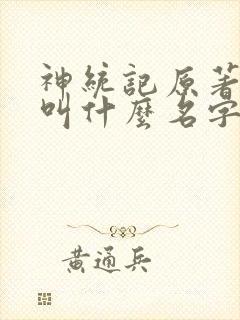 神統記原著
叫什麼名字
黃通兵